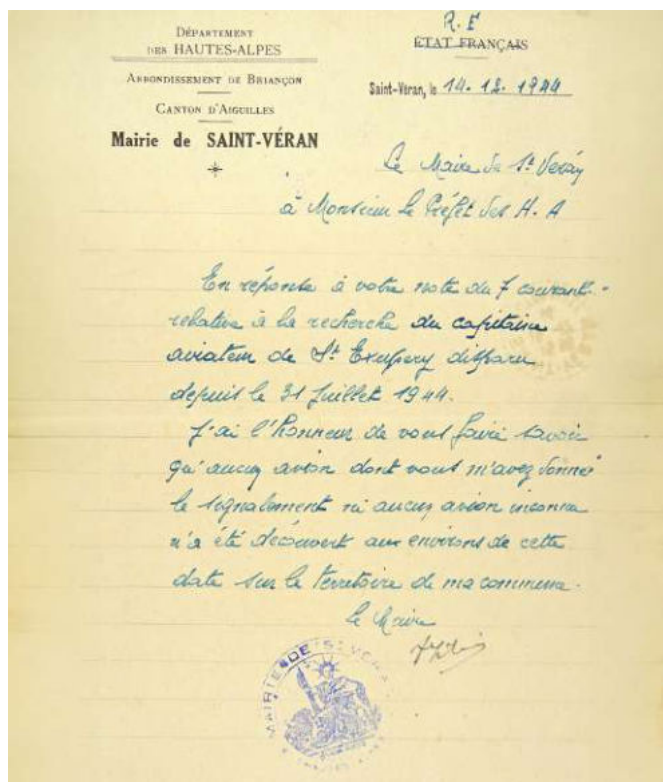 DÉPARTEMENT
DES HAUTES-ALPES
ARRONDISSEMENT DE BRIANÇON
CANTON D'AIGUILLES
Mairie de SAINT-VÉRAN
R.F
ÉTAT FRANÇAIS
Saint-Véran, le 14.12.1944
Le Maire de St Veran
à Monsieur le Préfet des H.A
En réponse à votre note du 7 courant
relative à la recherche du capitaine
aviateur de St Exupery disparu
depuis le 31 Juillet 1944.
J'ai l'honneur de vous faire savoir
qu'aucun avion dont vous m'avez donné
le signalement ni aucun avion inconnu
n'a été découvert aux environs de cette
date sur le territoire de ma commune.
le Maire
MAIRIE DE St VERAN